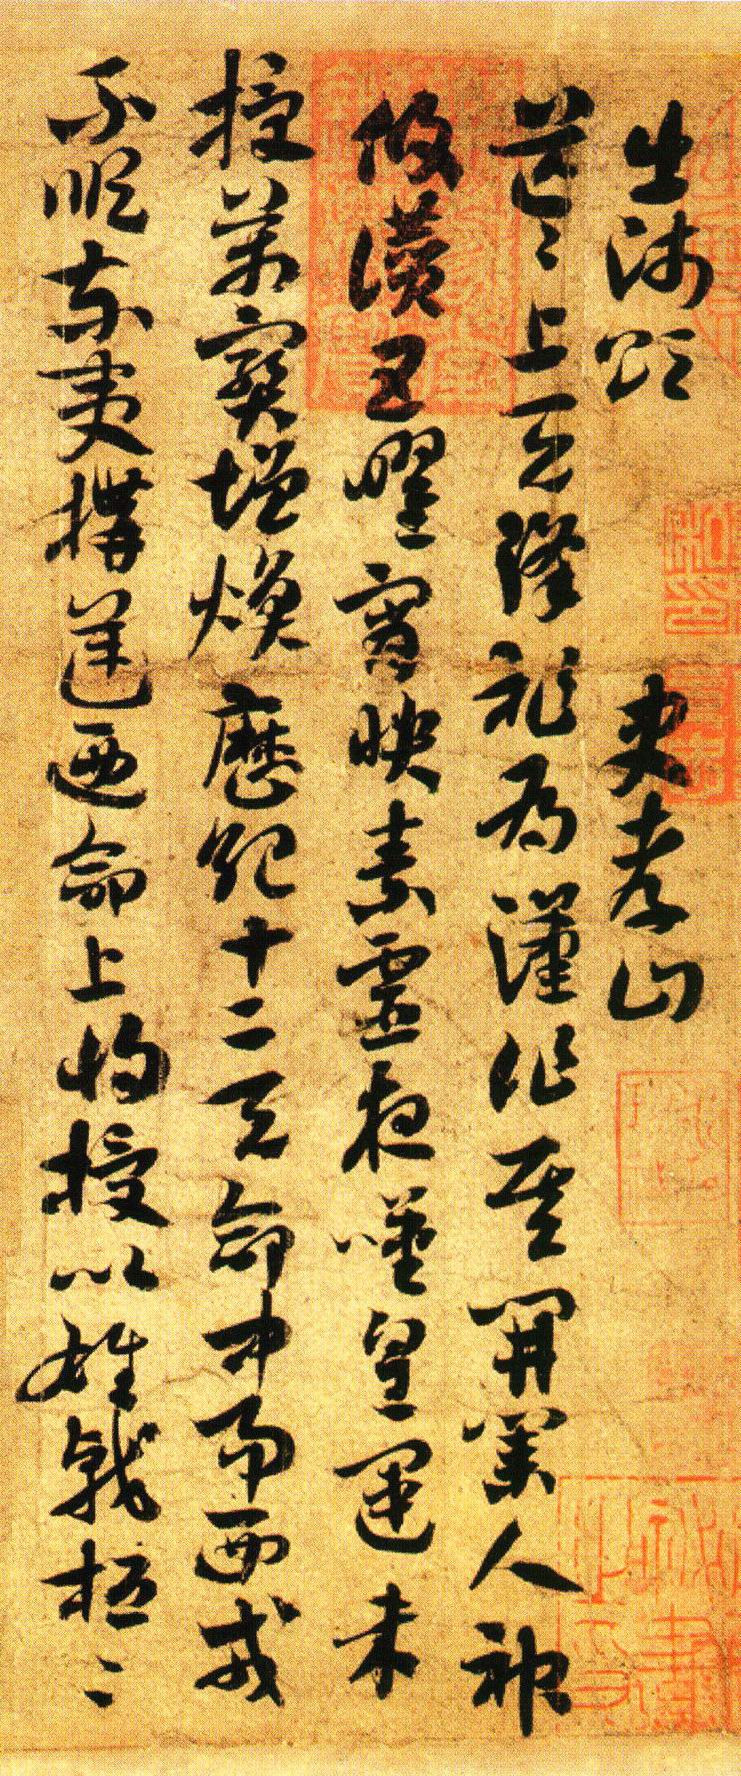 出師頌 史孝山
茫〻上天降祚為漢作基開業人神
攸讚五曜宵映素靈夜嘆皇運未
授萬寶增煥歷紀十二天命中易西戎
不順東夷構逆迺命上將授以雄戟桓〻